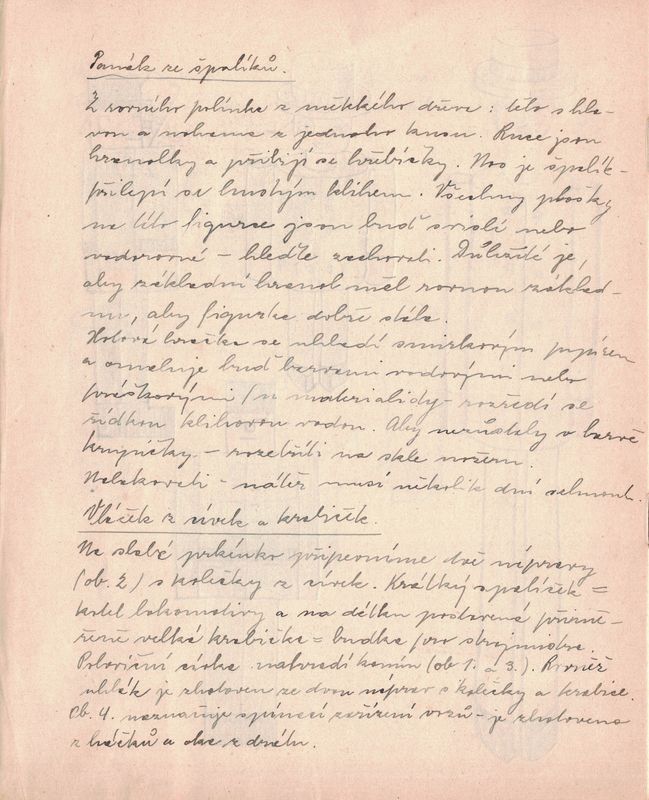 Panák ze špalíků.
Z rovného polínka z měkkého dřeva: tělo s hla-
vou a nohama z jednoho kusu. Ruce jsou
hranolky a přibijí se hřebíčky. Nos je špalík -
přilepí se hustým klihem. Všechny plošky
na této figurce jsou buď svislé nebo
vodorovné - hleďte zachovati. Důležité je,
aby základní hranol měl rovnou základ-
nu, aby figurka dobře stála.
Hotová hračka se uhladí smirkovým papírem
a omaluje buď barvami vodovými nebo
práškovými / u materialisty - rozředí se
řídkou klihovou vodou. Aby nezůstaly v barvě
krupičky - rozetříti na skle nožem.
Nalakovati - nátěr musí několik dní schnouti.
Vláček z cívek a krabiček.
Na slabé prkénko připevníme dvě nápravy
(ob. 2) s kolečky z cívek. Krátký špalíček =
kotel lokomotivy a na délku postavená přimě-
řeně velká krabička = budka pro strojvůdce.
Poloviční cívka nahradí komín (ob 1. a 3.). Rovněž
uhlák je zhotoven ze dvou náprav s kolečky a krabice.
Ob. 4. naznačuje spínací zařízení vozů - je zhotoveno
z háčků a oka z drátu.